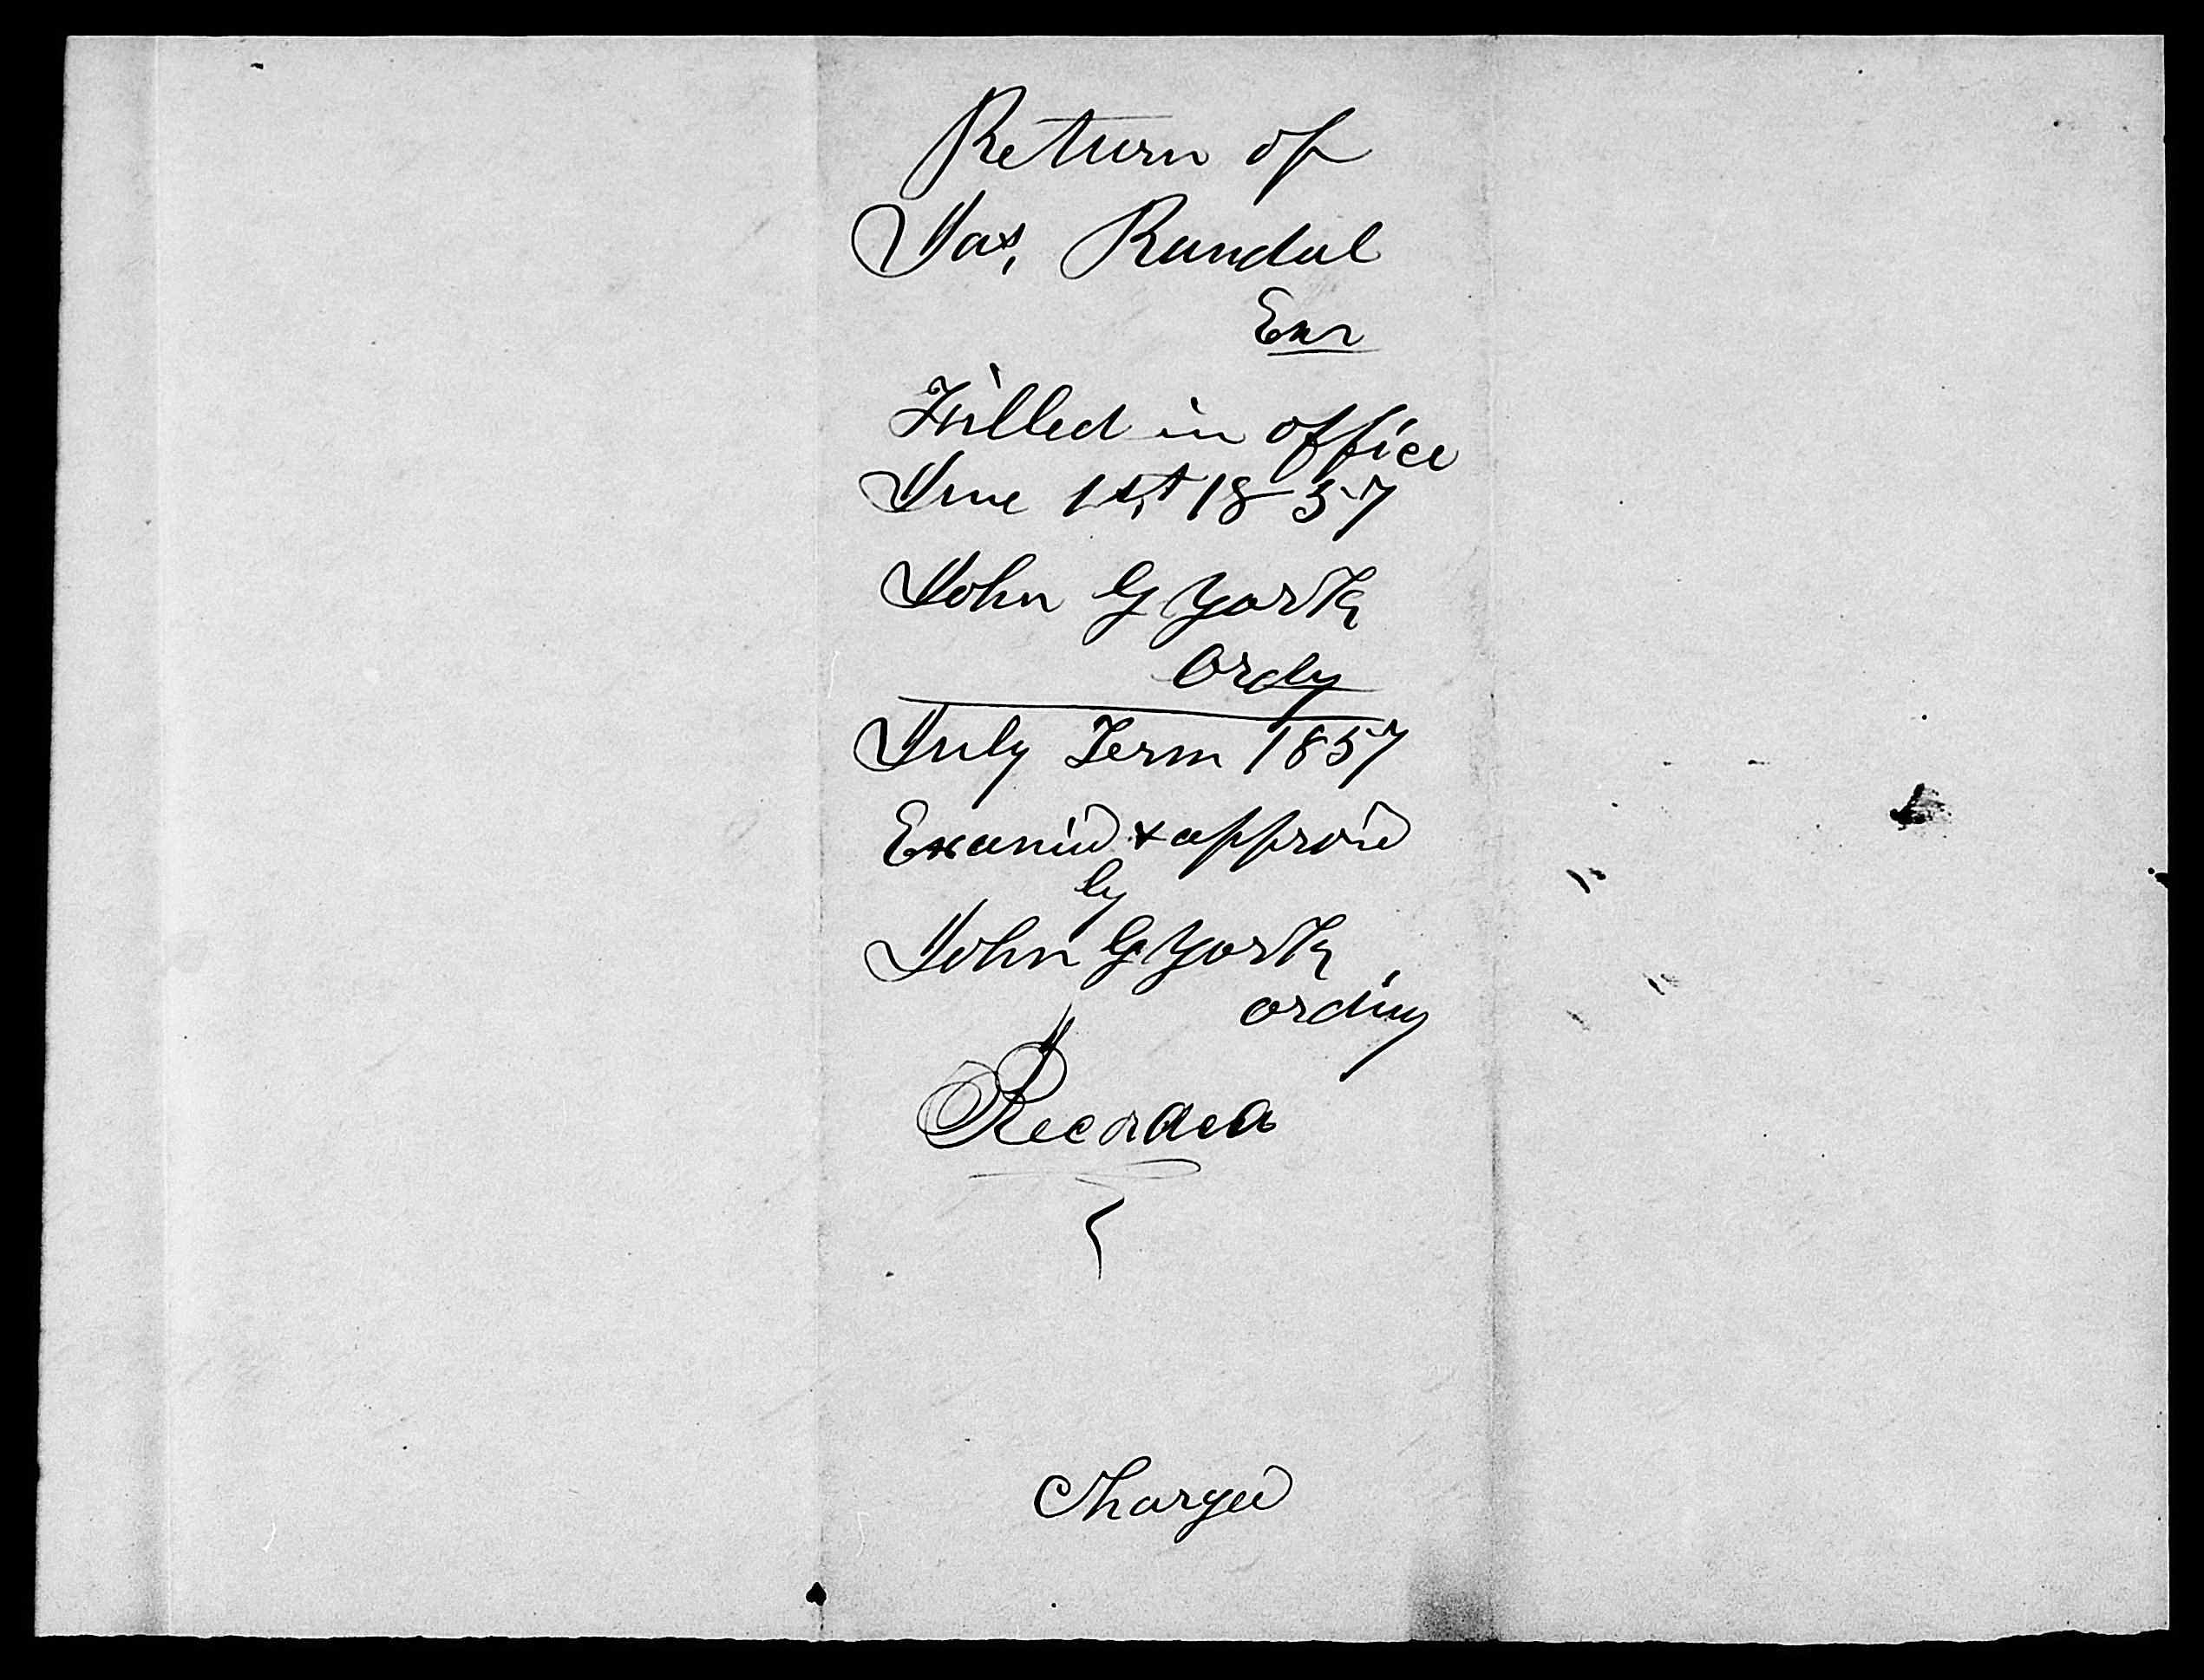 Return of
Jas, Randal
Exr
Filled in office
June 1st, 1857
John G York
Ordy
July Term 1857
Examid & approvd
by
John G York
ordiny
Recorded
Charged